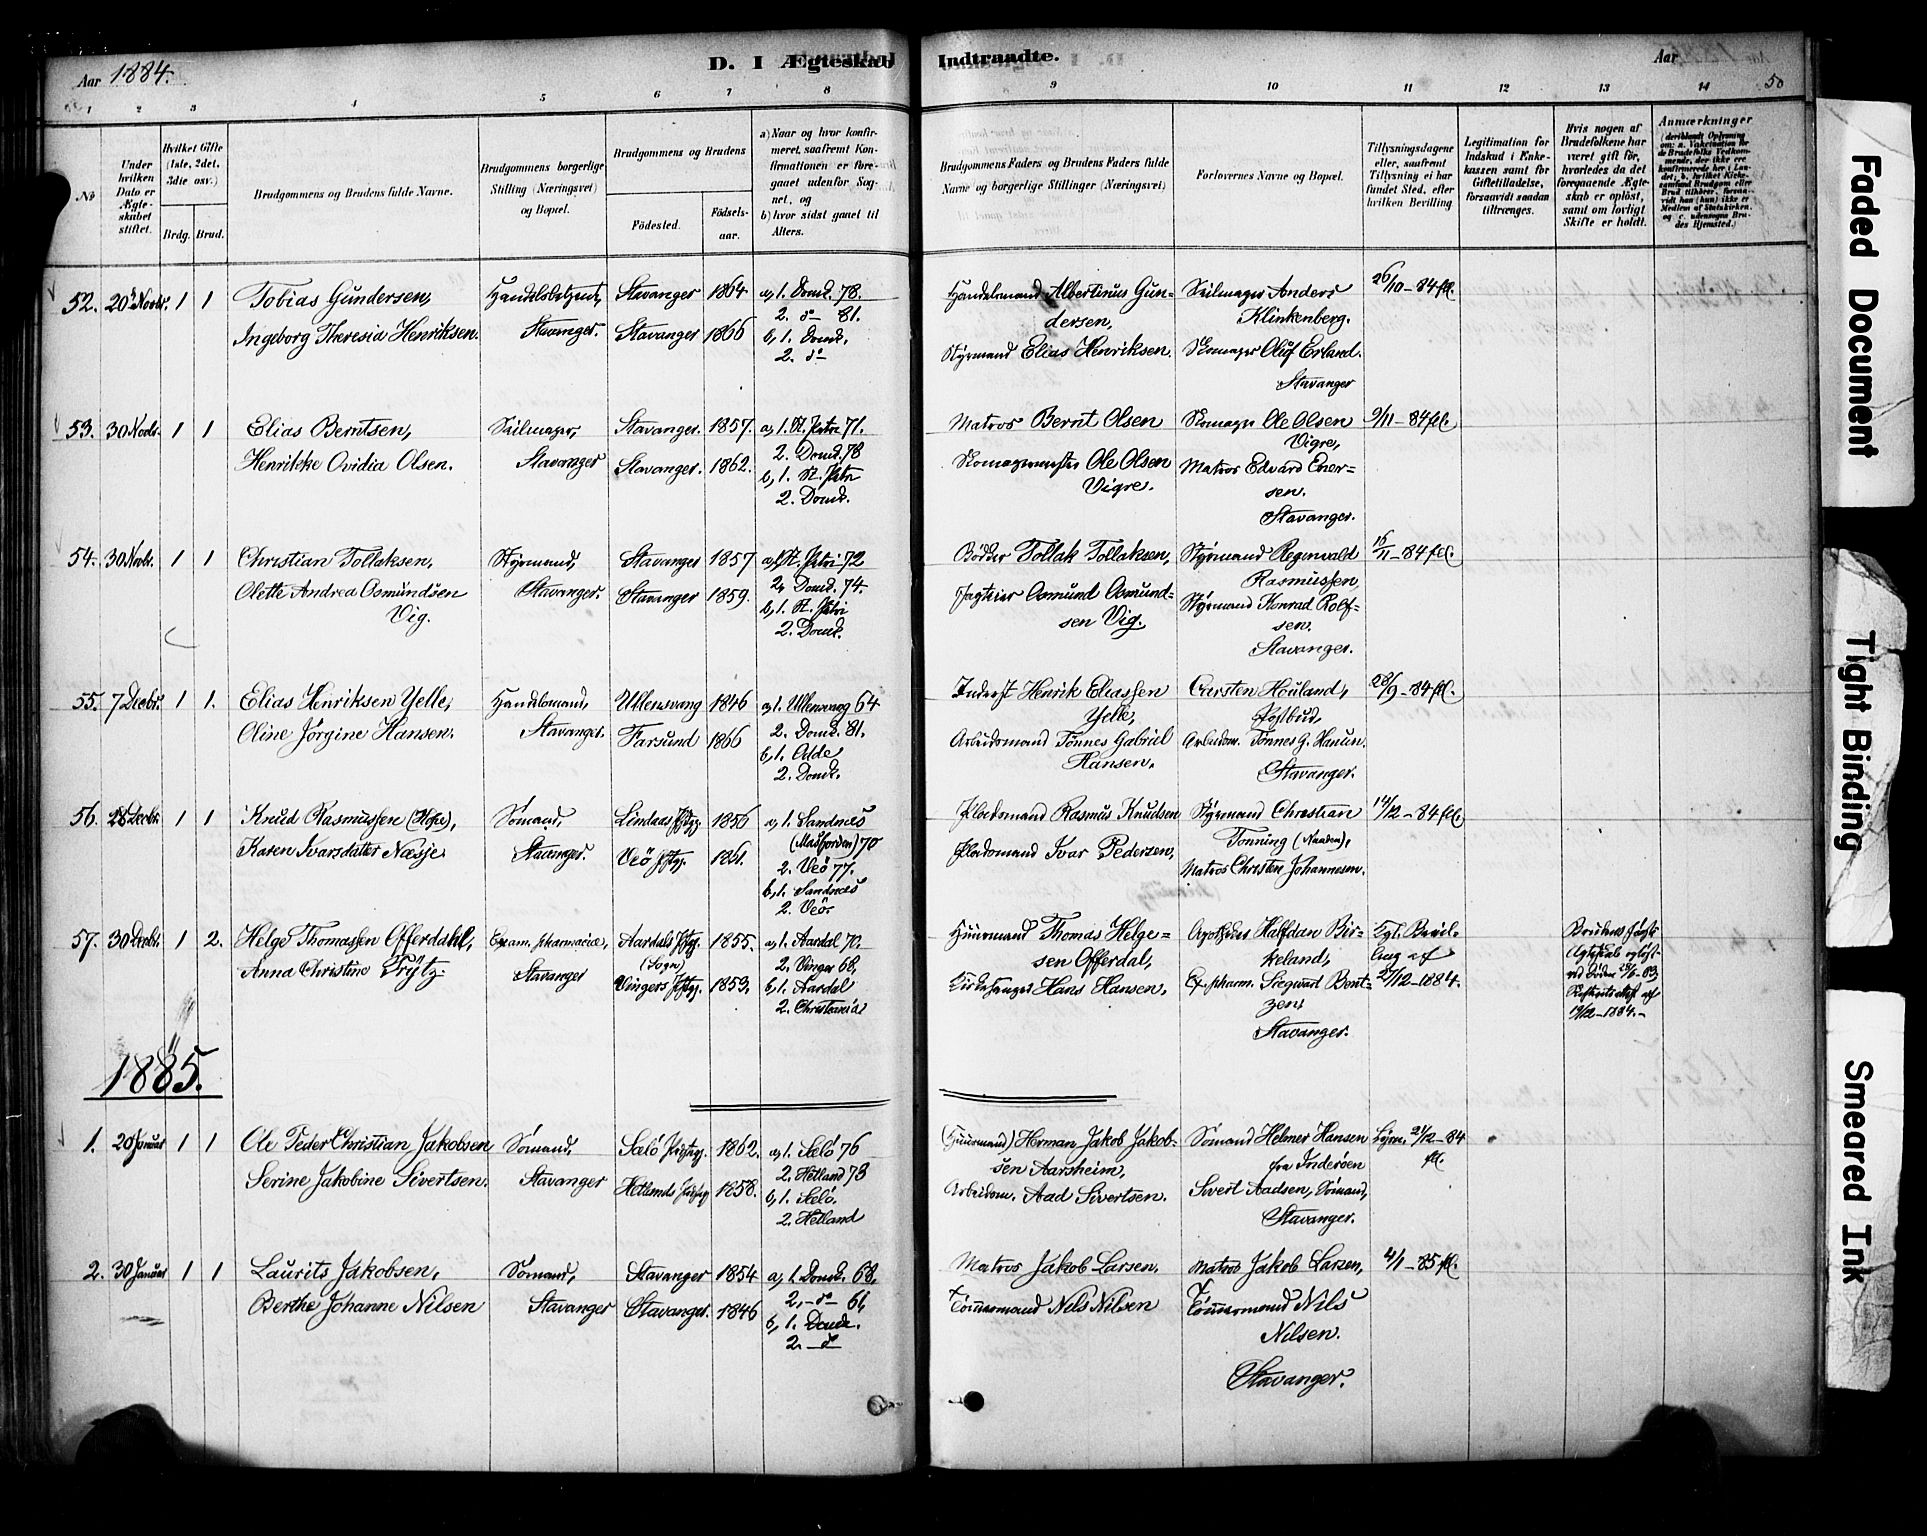 Aar 1884.
D. I Ægteskab
Indtraadte.
Aar
50
1 2 3 4 5 6 7 8
9 10 11 12 13 14
No
Under hvilken Dato er Ægteskabet stiftet.
Hvilket Gifte (1ste, 2det, 3die osv.)
Brdg. Brud.
Brudgommens og Brudens fulde Navne.
Brudgommens borgerlige Stilling (Næringsvei) og Bopæl.
Brudgommens og Brudens
Fødested.
Fødselsaar.
a) Naar og hvor konfirmeret, saafremt Konfirmationen er foregaaet udenfor Sognet, og
b) hvor sidst gaaet til Alters.
Brudgommens Faders og Brudens Faders fulde Navne og borgerlige Stillinger (Næringsvei)
Forlovernes Navne og Bopæl.
Tillysningsdagene eller, saafremt Tillysning ei har fundet Sted, efter hvilken Bevilling.
Legitimation for Indskud i Enkekassen samt for Giftetilladelse, forsaavidt saadan tiltrænges.
Hvis nogen af Brudefolkene har været gift før, hvorledes da det foregaaende Ægteskab er opløst, samt om lovligt Skifte er holdt.
Anmærkninger
52. 20 Novbr. 1 1 Tobias Gundersen, Handelsbetjent, Stavanger 1864 a, 1. Domk. 78. Handelsmand Albertinus Gun- Seilmager Anders 26/10-84 fl.
Stavanger. 2. do 81. dersen, Klinkenberg.
Ingeborg Theresia Henriksen. Stavanger 1866 b, 1. Domk. Styrmand Elias Henriksen. Skomager Oluf Erland.
2. do Stavanger
53. 30 Novbr. 1 1 Elias Berntsen, Seilmager, Stavanger. 1857. a, 1. St. Petri 71. Matros Bernt Olsen Skomager Ole Olsen 9/11-84 fl.
2. Domk. 78 Vigre,
Henrikke Ovidia Olsen. Stavanger Stavanger. 1862. b, 1. St. Petri Skomagermester Ole Olsen Matros Edvard Ener-
2. Domk. Vigre. sen.
Stavanger.
54. 30 Novbr. 1 1 Christian Tollaksen, Styrmand, Stavanger 1857 a, 1. St. Petri 72 Bødker Tollak Tollaksen, Styrmand Regenvald 16/11-84 fl.
Stavanger. 2. Domk. 74. Rasmussen,
Olette Andrea Osmundsen Stavanger 1859. b, 1. St. Petri Jagteier Osmund Osmund- Styrmand Konrad Rolf-
Vig. 2. Domk. sen Vig. sen.
Stavanger.
55. 7 Decbr. 1 1. Elias Henriksen Yelle, Handelsmand, Ullensvang 1846 a, 1. Ullensvang 64 Inderst Henrik Eliassen Carsten Houland, 28/9-84 fl.
Stavanger. 2. Domk. 81. Yelle, Postbud,
Oline Jørgine Hansen. Farsund 1866 b, 1. Odde Arbeidsmand Tønnes Gabriel Arbeidsm. Tønnes G. Hansen.
2. Domk. Hansen. Stavanger.
56. 28 Decbr. 1 1 Knud Rasmussen (Hope), Sømand, Lindaas Pstgj. 1856 a, 1. Sandnes Pladsmand Rasmus Knudsen Styrmand Christian 14/12-84 fl.
(Masfjorden) 70 Tonning (Nauden),
Karen Ivarsdatter Næsje. Stavanger. Veø Pstgj. 1861. 2. Veø 77. Pladsmand Ivar Pedersen, Matros Christen Johannesen.
b, 1. Sandnes
2. Veø.
57. 30 Decbr. 1 2. Helge Thomassen Offerdahl, Exam. pharmaciæ, Aardals Pstgj. 1855. a, 1. Aardal 70. Huusmand Thomas Helge- Apotheker Halfdan Bir- Kgl. Bevil- Brudens første
(Sogn) 2. Vinger 68, sen Offerdal, keland, ling af Ægteskab opløst
Anna Christine Prytz. Stavanger Vingers Pstgj. 1853. b, 1. Aardal Kirkesanger Hans Hansen, Ex. pharm. Siegwart Bent- 27/12-1884. ved Døden
2. Christiania zen, Skifteretsattest af
Stavanger. 19/12-1884.-
1885.
1. 20 Januar 1 1 Ole Peder Christian Jakobsen Sømand, Sælø Pstgj. 1862. a, 1. Sælø 76 (Huusmand) Herman Jakob Jakob- Sømand Helmer Hansen 21/12-84
2. Hetland 73 sen Aarsheim, fra Inderøen fl.
Serine Jakobine Sivertsen. Stavanger Hetlands Pstgj. 1858. b, 1. Sælø. Arbeidsm. Aad Sivertsen. Sivert Aadsen, Sømand,
2. Hetland Stavanger.
2. 30 Januar 1 1 Laurits Jakobsen, Sømand, Stavanger 1854 a, 1. Domk. 68. Matros Jakob Larsen, Matros Jakob Larsen, 4/1-85 fl.
2, - do - 61,
Berthe Johanne Nilsen Stavanger Stavanger. 1846 b, 1. Domk. Tømmermand Nils Nilsen Tømmermand Nils
2. - do Nilsen.
Stavanger.
Faded Document
Tight Binding
Smeared Ink